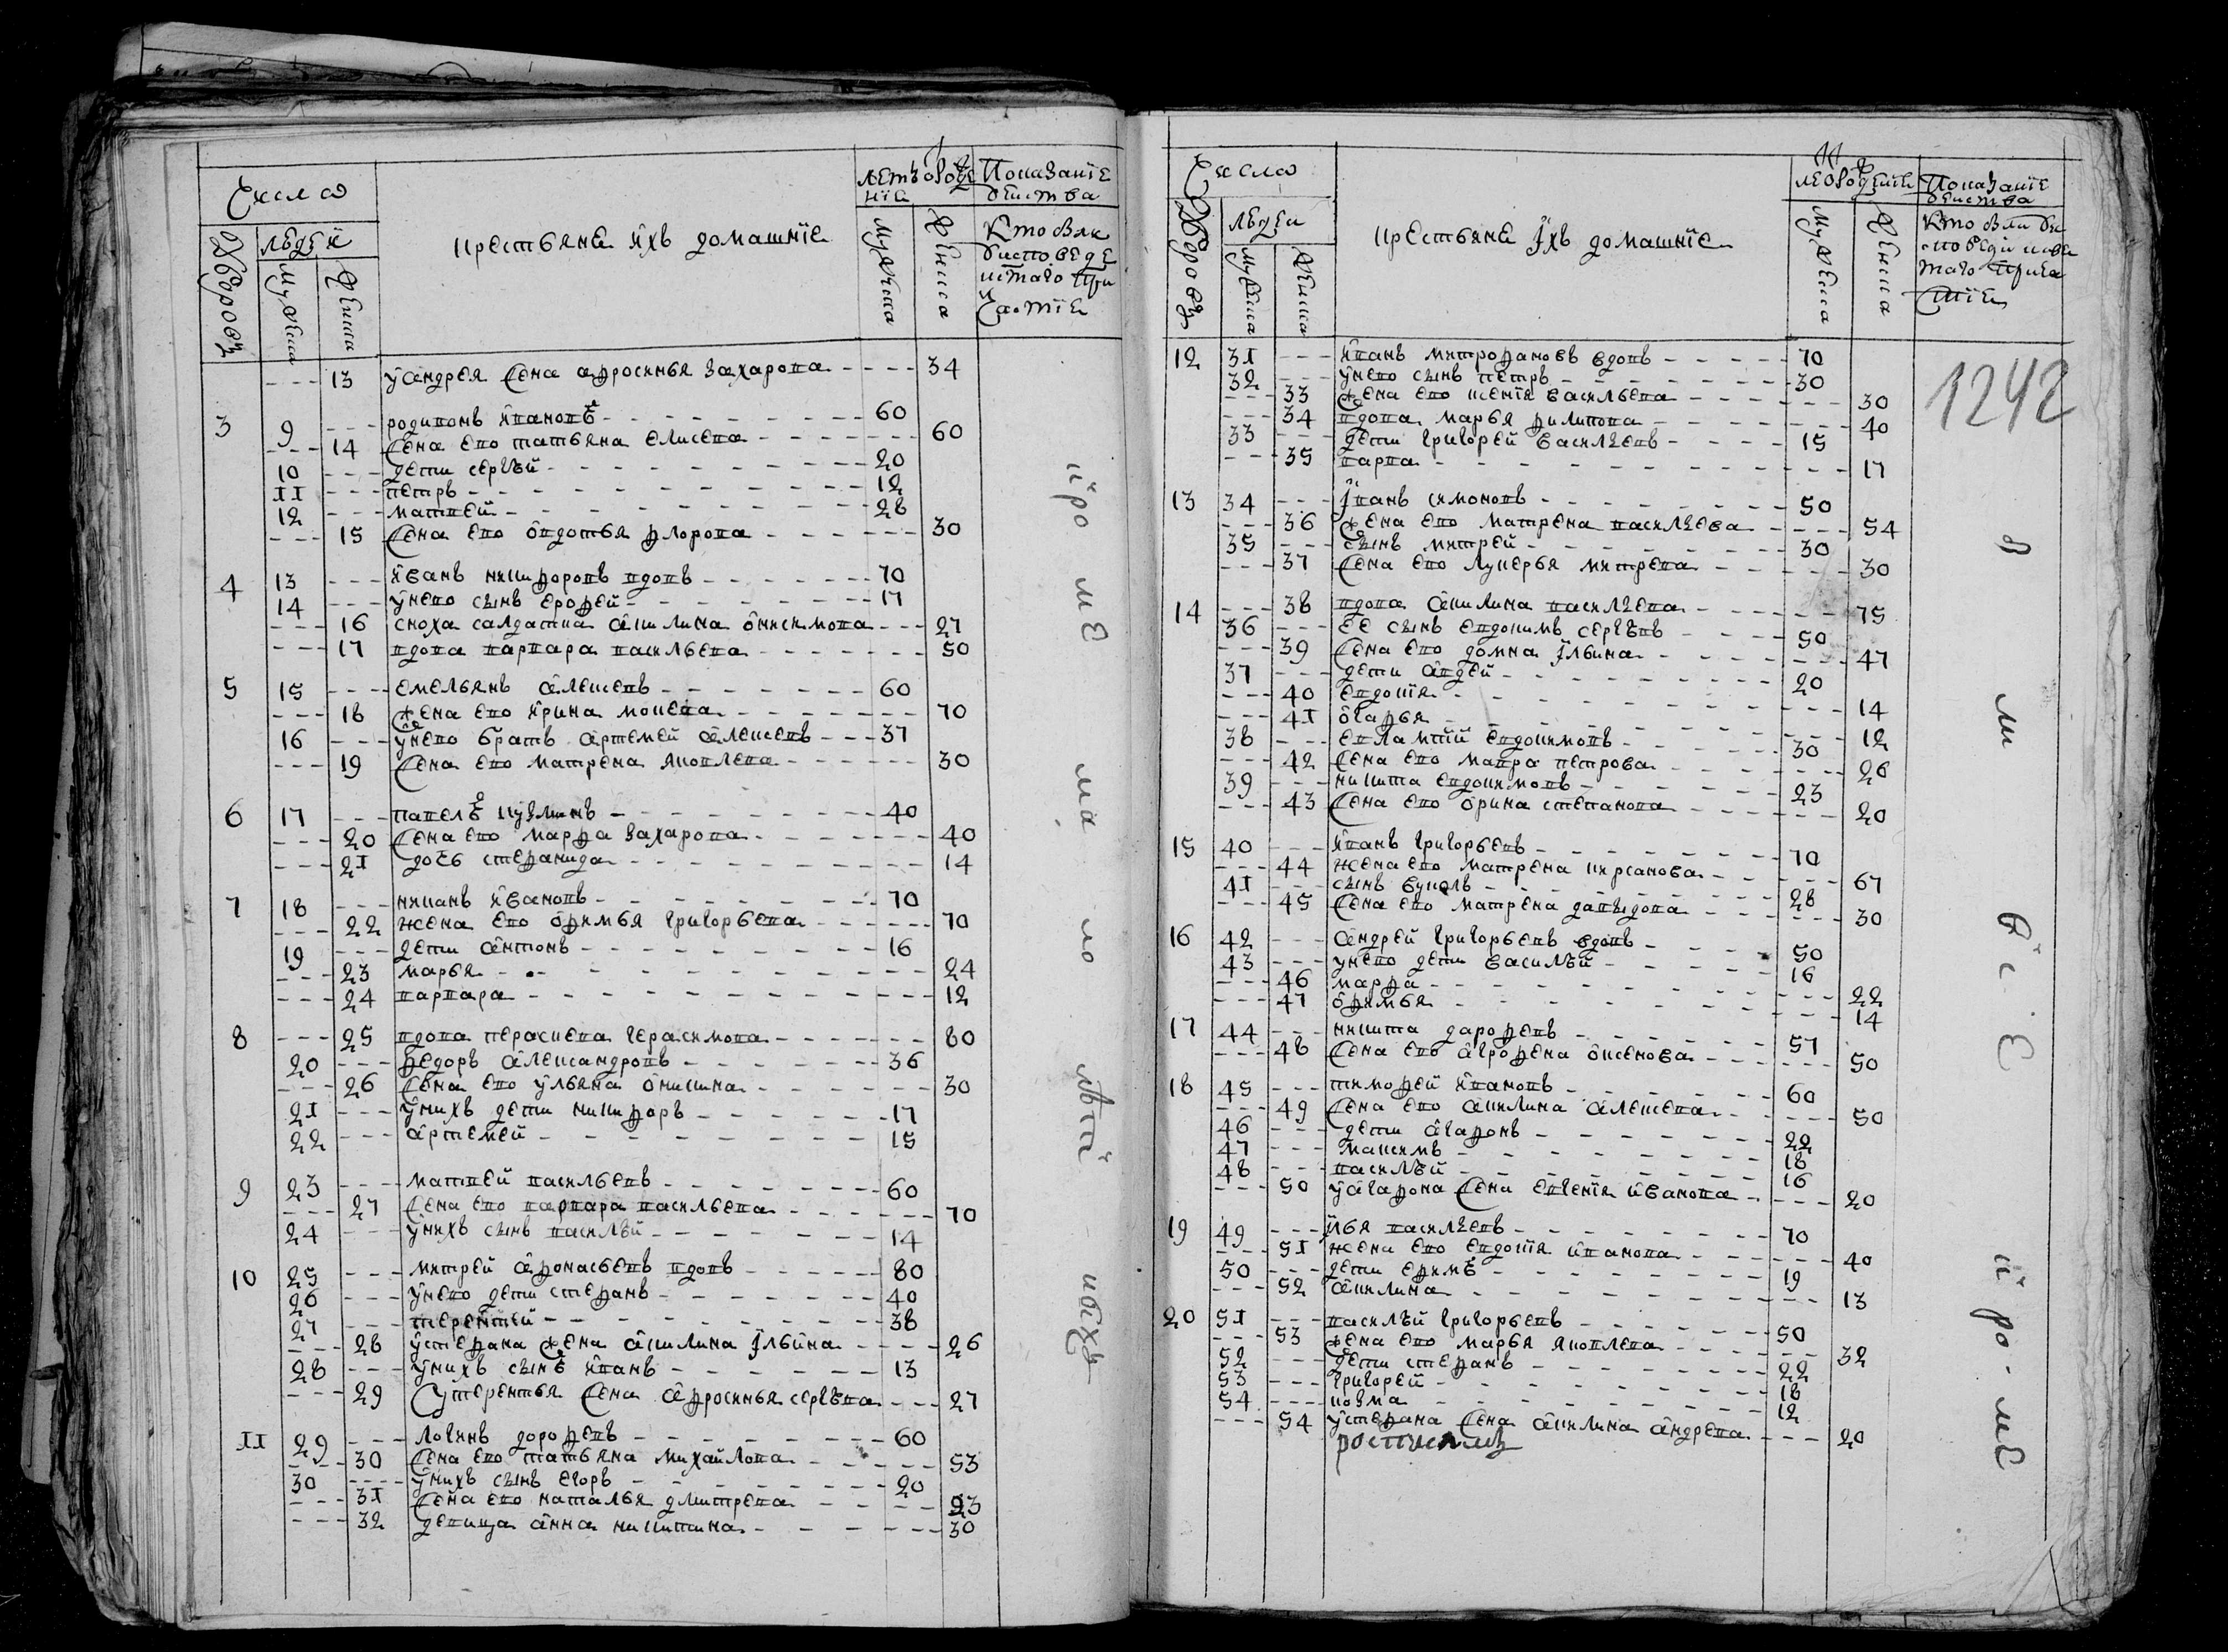 Число
Дворовъ
людей
мужеска
женска
крестьяне ихъ домашние
летъ о рожде
ние
мужеска
женска
Показание
действа
Кто былъ у
исповеди
и святаго при
частие
13 у андрея жена афросинья захарова 34
3 9 родивонъ иванов 60
14 жена ево татьяна елисева 60
10 дети сергей 20
11 петръ 12
12 матвей 28
15 жена ево овдотья флорова 30
4 13 иванъ никифоровъ вдовъ 70
14 у нево сынъ ерофей 17
16 сноха салдатка акилина онисимова 27
17 вдова варвара васильева 50
5 15 емельянъ алексевъ 60
18 жена ево ирина мокева 70
16 у нево братъ артемей алексевъ 37
19 жена ево матрена яковлева 30
6 17 павелъ кузминъ 40
20 жена ево марфа захарова 40
21 дочь стефанида 14
7 18 никанъ ивановъ 70
22 жена ево офимья григорьева 70
19 дети антонъ 16
23 марья 24
24 варвара 12
8 25 вдова параскева герасимова 80
20 федоръ александровъ 36
26 жена ево ульяна оникина 30
21 у нихъ дети никифоръ 17
22 артемей 15
9 23 матвей васильевъ 60
27 жена ево варвара васильева 70
24 у нихъ сынъ василей 14
10 25 митрей афонасьевъ вдовъ 80
26 у нево дети стефанъ 40
27 терентей 38
28 у стефана жена акилина ильина 26
28 у нихъ сынъ иванъ 13
29 у терентья жена афросинья сергева 27
11 29 логинъ дорофевъ 60
30 жена ево татьяна михайлова 53
30 у нихъ сынъ егоръ 20
31 жена ево наталья дмитрева 23
32 девица анна никитина 30
кро ме ма ло летн ыхъ
Число
Дворовъ
людей
мужеска
женска
крестьяне ихъ домашние
ле о рождени
мужеска
женска
Показание
действа
Кто был у ис
поведи и свя
таго прича
стие
1242
12 31 иванъ митрофановъ вдовъ 70
32 у нево сынъ петръ 30
33 жена ево ксения васильева 30
34 вдова марья филипова 40
33 дети григорей васильевъ 15
35 варвара 17
13 34 иванъ симоновъ 50
36 жена ево матрена васильева 54
35 сынъ митрей 30
37 жена ево лукерья митрева 30
14 38 вдова акилина васильева 75
36 ее сынъ евдокимъ сергевъ 50
39 жена ево домна ильина 47
37 дети андей 20
40 евдокия 14
41 огафья 12
38 евлампий евдокимовъ 30
42 жена ево мавра петрова 26
39 никита евдокимовъ 23
43 жена ево орина степанова 20
15 40 иванъ григорьевъ 70
44 жена ево матрена кирсанова 67
41 сынъ вуколъ 28
45 жена ево матрена давыдова 30
16 42 андрей григорьевъ вдовъ 50
43 у нево дети василей 16
46 марфа 22
47 офимья 14
17 44 никита дарофевъ 57
48 жена ево агрофена оксенова 50
18 45 тимофей ивановъ 60
49 жена ево акилина алексева 50
46 дети агафонъ 22
47 максимъ 18
48 василей 16
50 у агафона жена евгения иванова 20
19 49 илья васильевъ 70
51 жена ево евдокия иванова 40
50 дети ефимъ 19
52 акилина 13
20 51 василей григорьевъ 50
53 жена ево марья яковлева 32
52 дети стефанъ 22
53 григорей 18
54 козма 12
54 у стефана жена акилина андрева 20
всѣ кро-ме